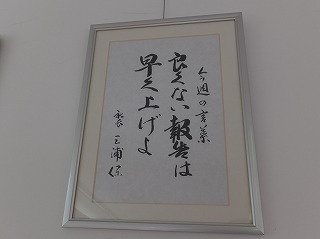 今週の言葉
良くない報告は
早く上げよ
三浦 保